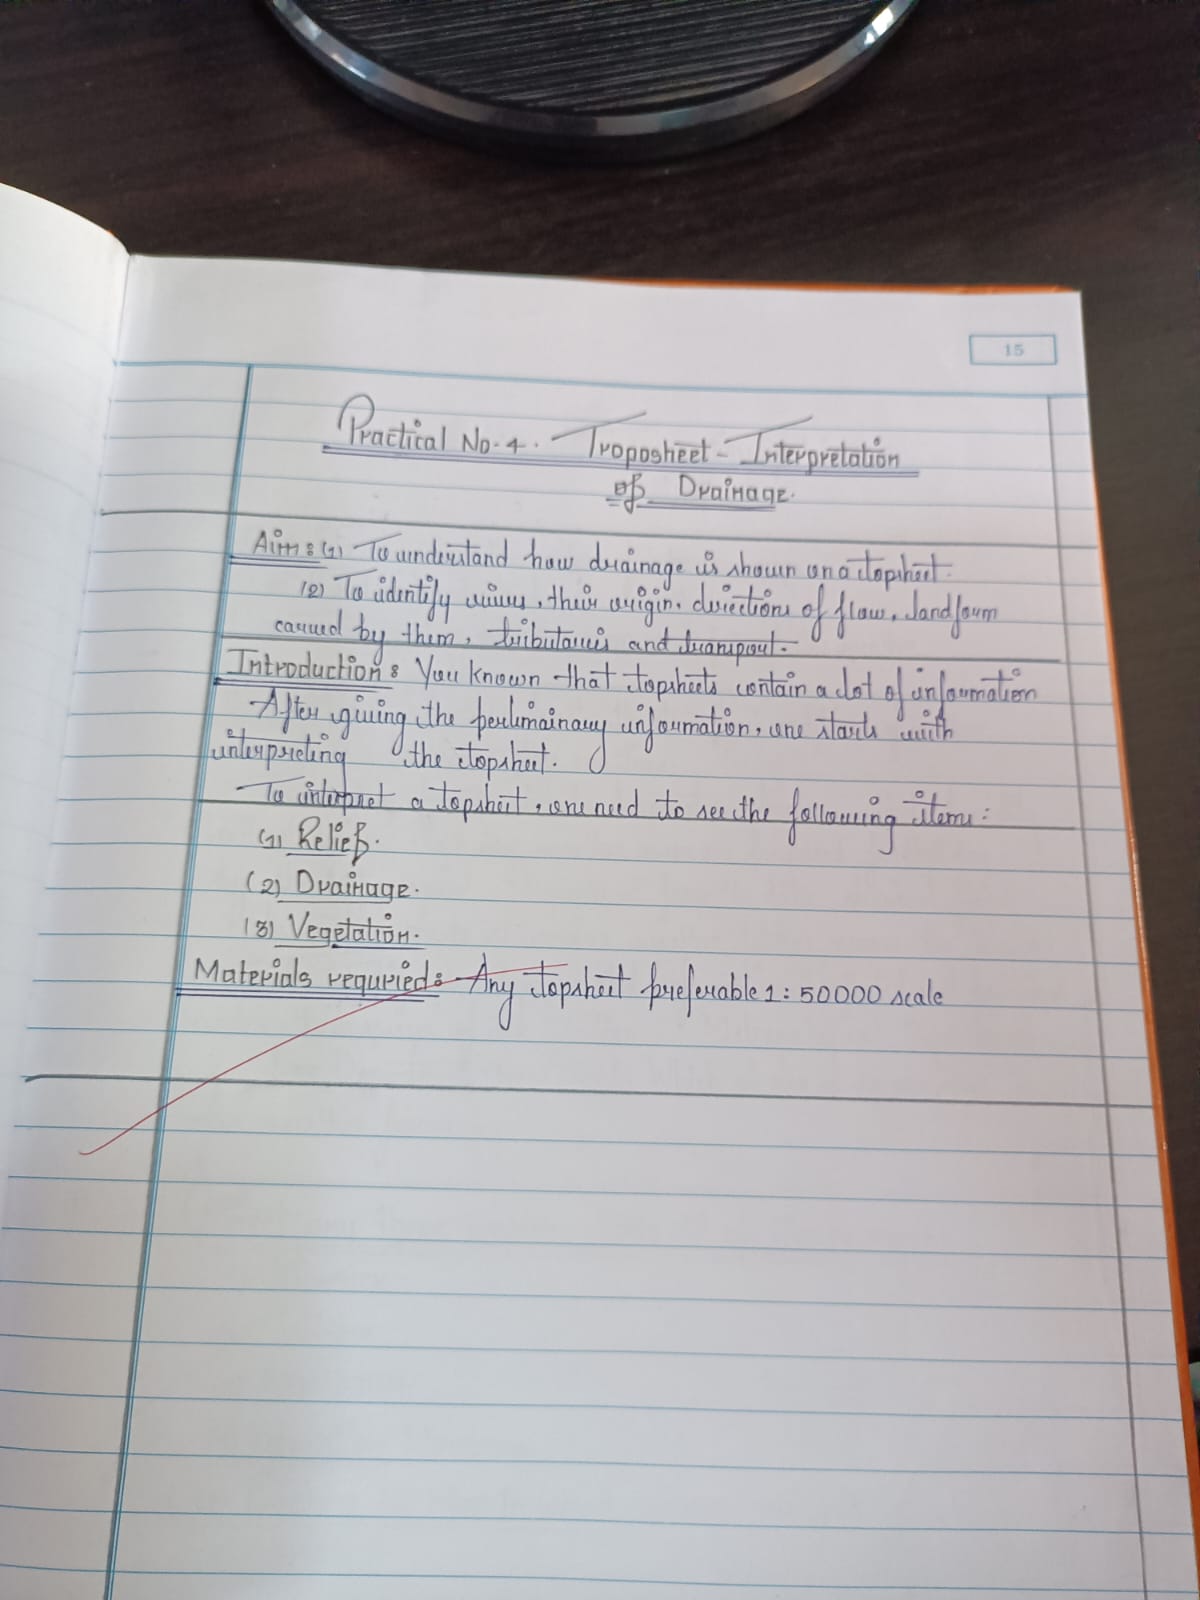 15
Practical No. 4. Troposheet - Interpretation
of Drainage.
Aim: (1) To understand how drainage is shown on a topsheet.
(2) To identify rivers, their origin, directions of flow, landform
carved by them, tributaries and transport.
Introduction: You known that topsheets contain a lot of information
After giving the perlimainary information, one starts with
interpreting the topsheet.
To interpret a topsheet, one need to see the following items:
(1) Relief.
(2) Drainage.
(3) Vegetation.
Materials requried: Any topsheet preferable 1: 50000 scale